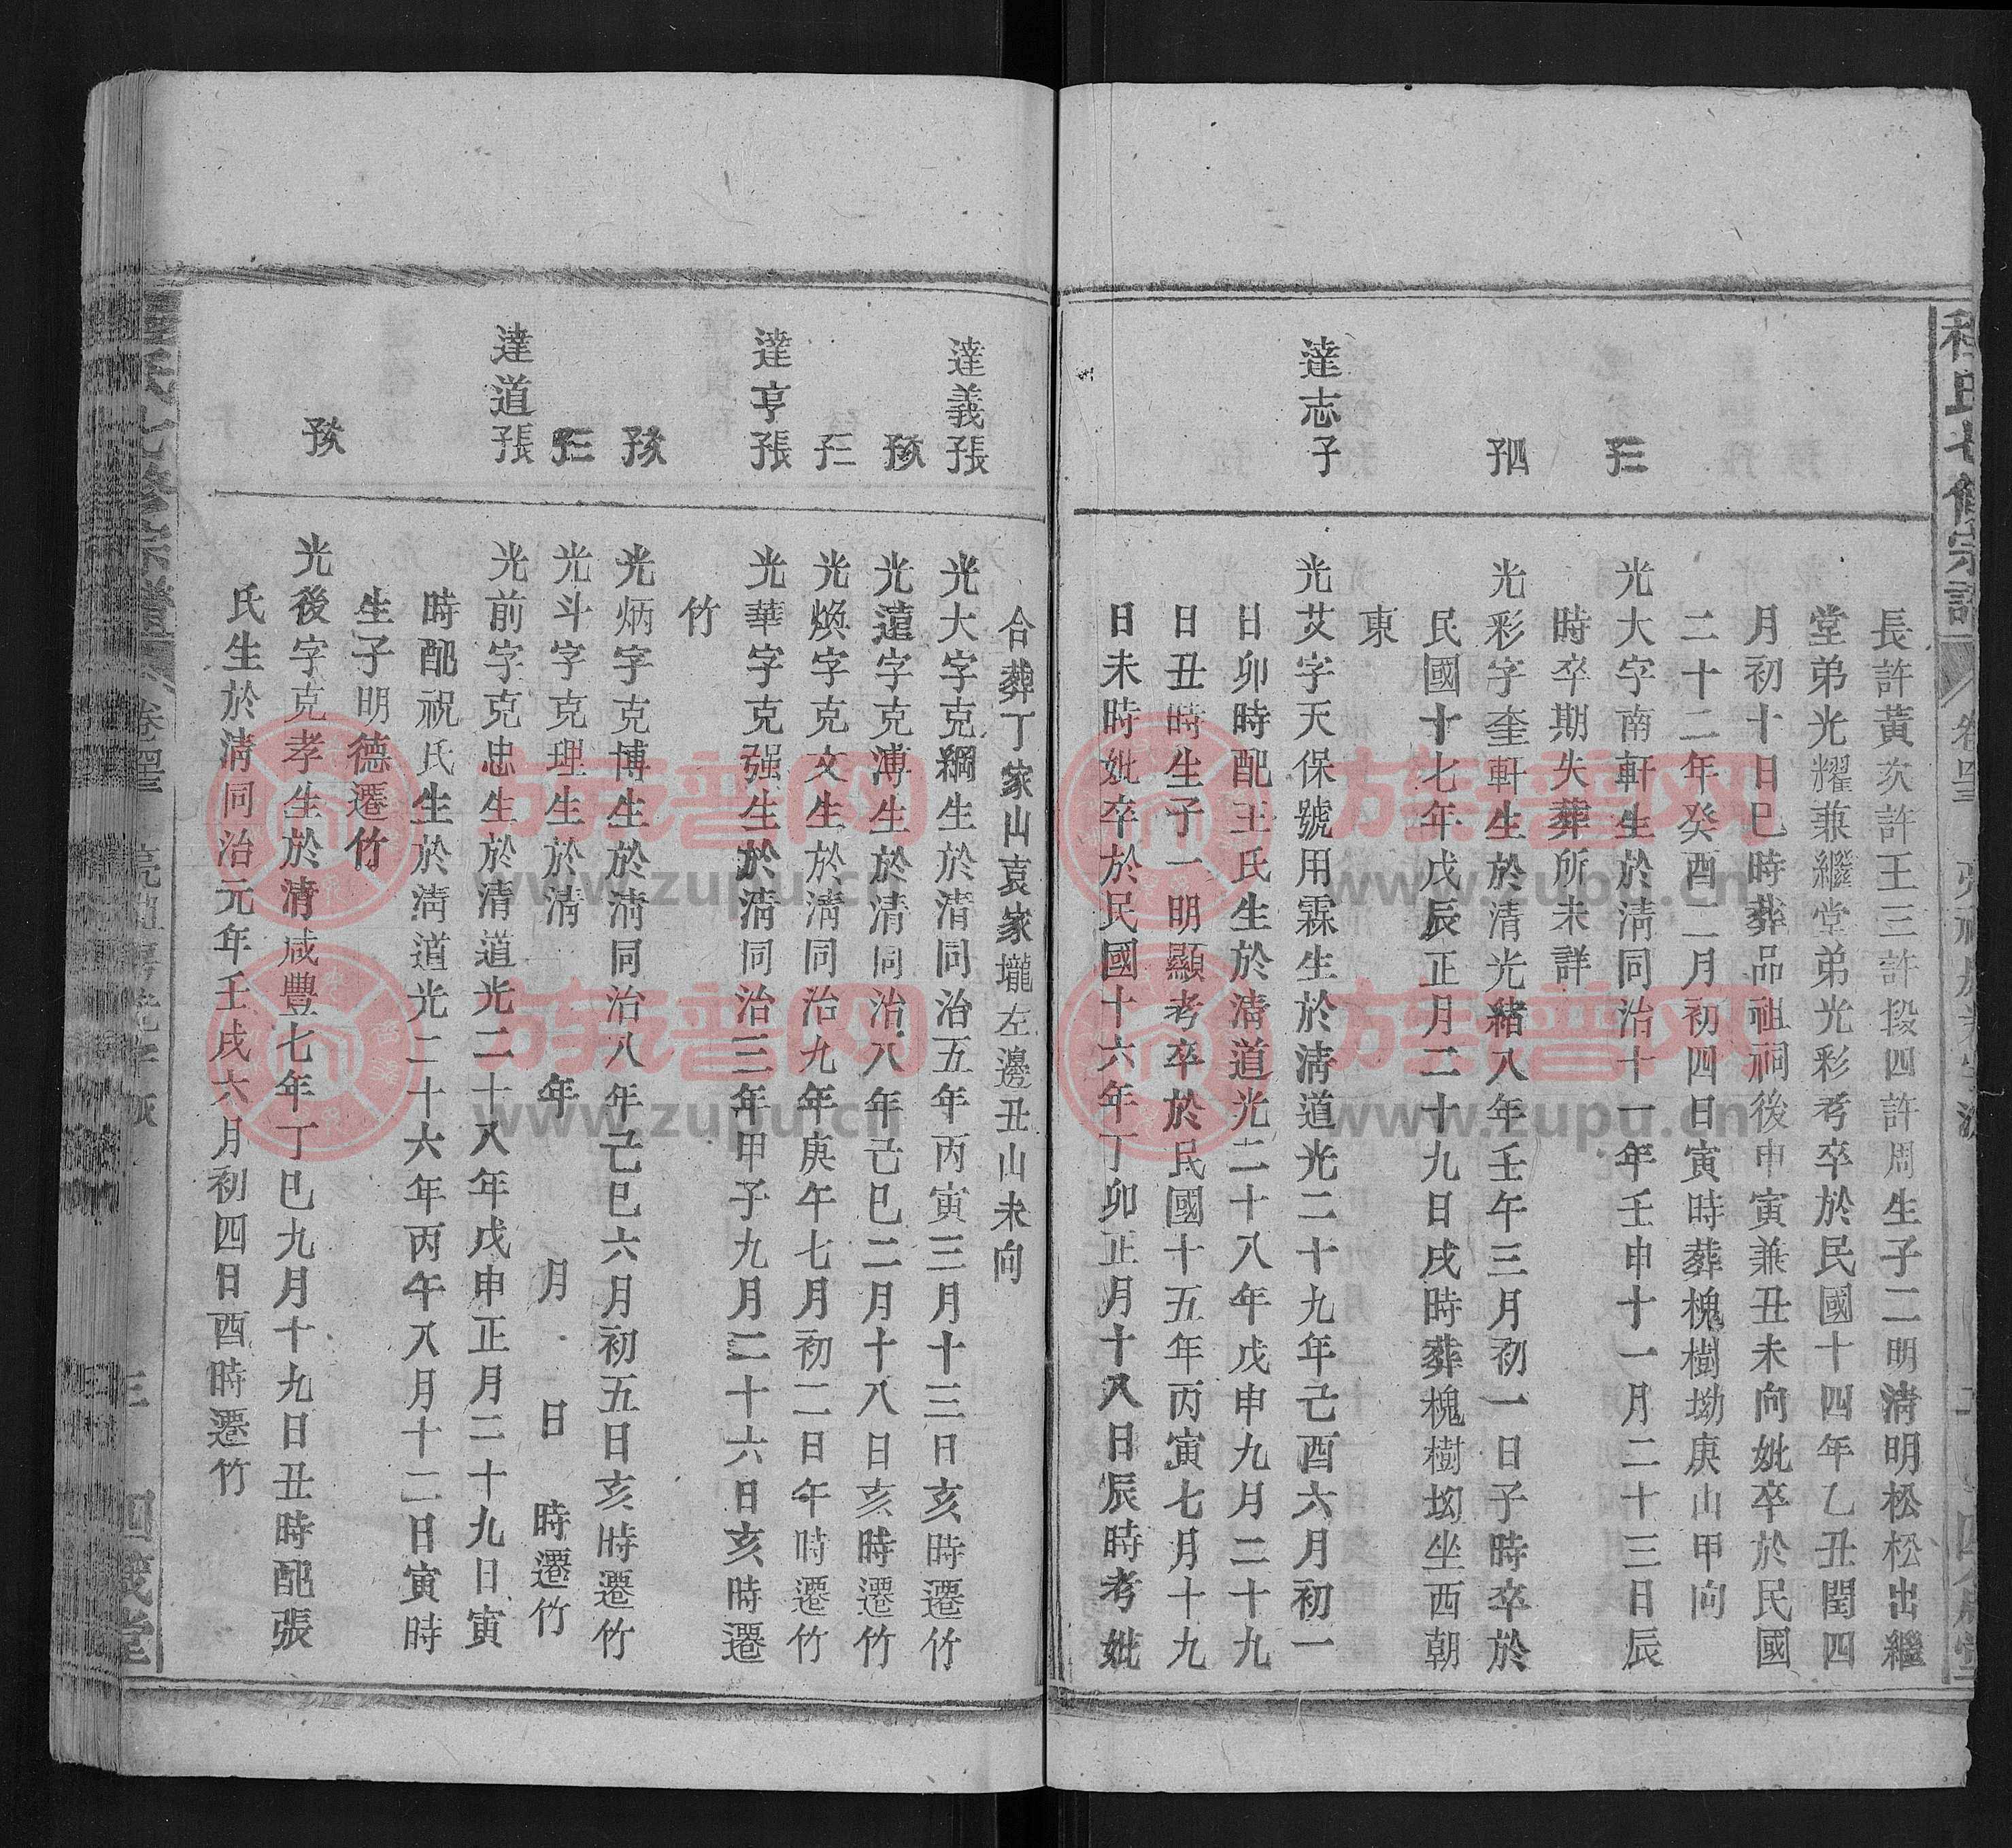 程氏七修宗譜
長許黃次許王三許段四許周生子二明淸明松松出繼
堂弟光耀兼繼堂弟光彩考卒於民國十四年乙丑閏四
月初十日巳時葬品祖祠後申寅兼丑未向妣卒於民國
二十二年癸酉二月初四日寅時葬槐樹坳庚山甲向
三子
光大字南軒生於淸同治十一年壬申十一月二十三日辰
時卒期失葬所未詳
四子
光彩字奎軒生於清光緒八年壬午三月初一日子時卒於
民國十七年戊辰正月二十九日戌時葬槐樹坳坐西朝
東
達志子
光艾字天保號用霖生於淸道光二十九年己酉六月初一
日卯時配王氏生於淸道光二十八年戊申九月二十九
日丑時生子一明顯考卒於民國十五年丙寅七月十九
日未時妣卒於民國十六年丁卯正月十八日辰時考妣
合葬丁家山袁家壠左邊丑山未向
達義長子
光大字克綱生於清同治五年丙寅三月十三日亥時遷竹
次子
光遠字克溥生於清同治八年己巳二月十八日亥時遷竹
三子
光煥字克文生於淸同治九年庚午七月初二日午時遷竹
達亨長子
光華字克强生於淸同治三年甲子九月二十六日亥時遷
竹
次子
光炳字克博生於淸同治八年己巳六月初五日亥時遷竹
三子
光斗字克理生於淸 年 月 日 時遷竹
達道長子
光前字克忠生於清道光二十八年戊申正月二十九日寅
時配祝氏生於淸道光二十六年丙午八月十二日寅時
生子明德遷竹
次子
光後字克孝生於清咸豐七年丁巳九月十九日丑時配張
氏生於淸同治元年壬戌六月初四日酉時遷竹
族谱网
www.zupu.cn